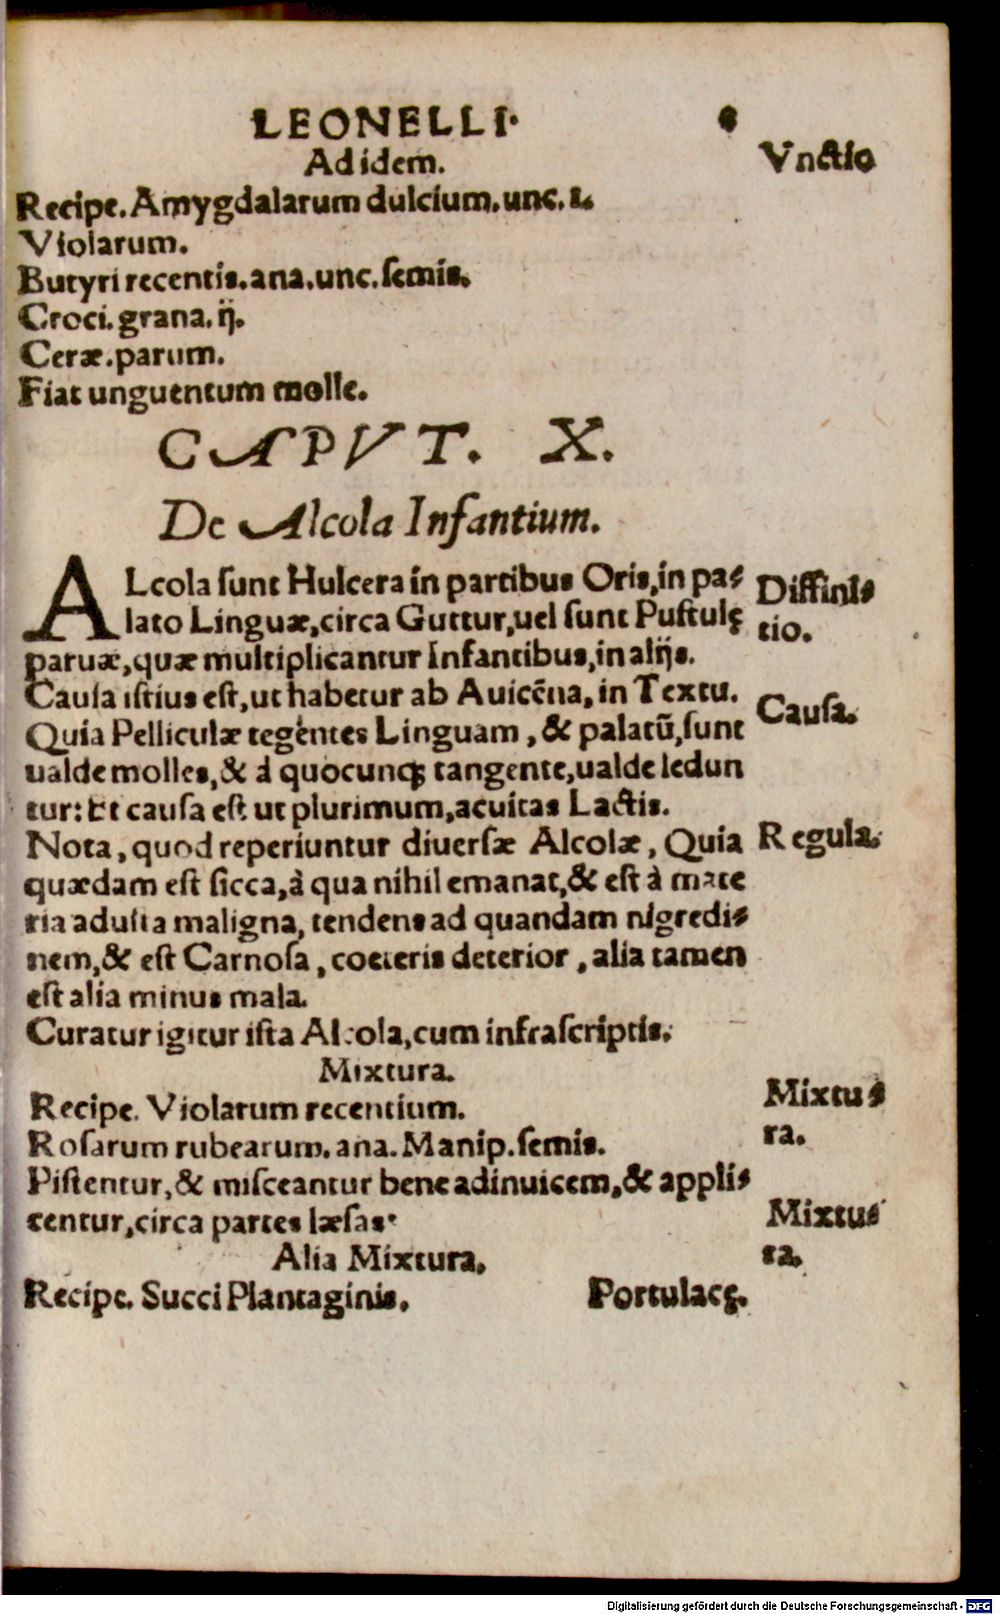 LEONELLI·
Ad idem.
Vnctio
Recipe. Amygdalarum dulcium. unc. 1.
Violarum.
Butyri recentis. ana. unc. semis.
Croci. grana. ij.
Ceræ. parum.
Fiat unguentum molle.
CAPVT. X.
De Alcola Infantium.
ALcola sunt Hulcera in partibus Oris, in pa-
Diffini-
lato Linguæ, circa Guttur, uel sunt Pustulę
tio.
paruæ, quæ multiplicantur Infantibus, in alijs.
Causa istius est, ut habetur ab Auicēna, in Textu.
Causa.
Quia Pelliculæ tegentes Linguam, & palatū, sunt
ualde molles, & à quocunq; tangente, ualde ledun
tur: Et causa est ut plurimum, acuitas Lactis.
Nota, quod reperiuntur diuersæ Alcolæ, Quia
Regula.
quædam est sicca, à qua nihil emanat, & est à mate
ria adusta maligna, tendens ad quandam nigredi-
nem, & est Carnosa, coeteris deterior, alia tamen
est alia minus mala.
Curatur igitur ista Alcola, cum infrascriptis.
Mixtura.
Recipe. Violarum recentium.
Mixtu-
ra.
Rosarum rubearum. ana. Manip. semis.
Pistentur, & misceantur bene adinuicem, & appli-
centur, circa partes læsas·
Alia Mixtura.
Mixtu-
ra.
Recipe. Succi Plantaginis.
Portulacę.
Digitalisierung gefördert durch die Deutsche Forschungsgemeinschaft - DFG